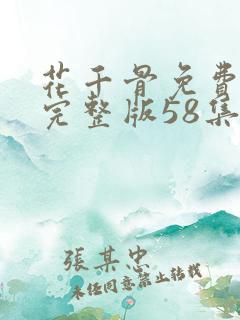 花千骨免費
完整版58集
張某忠
未经同意禁止转载